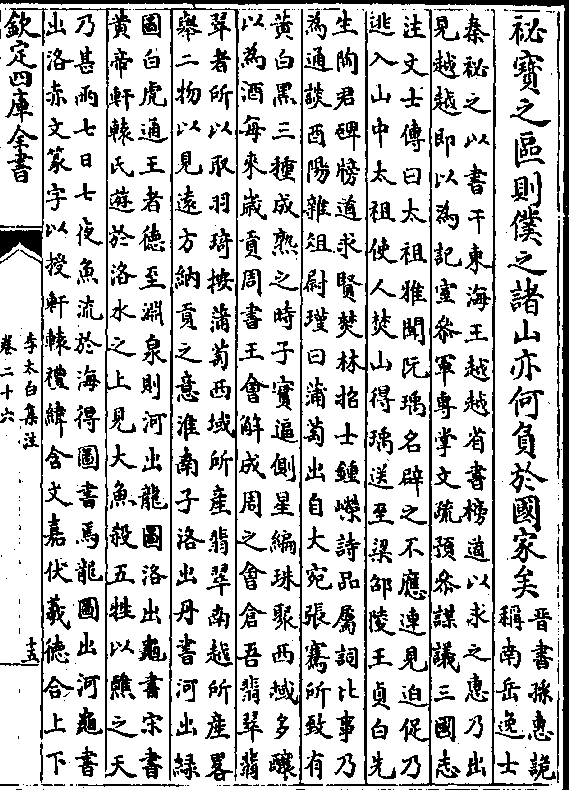 秘寳之區則僕之諸山亦何負於國家矣晋書孫惠詭
稱南岳逸士
秦秘之以書干東海王越越省書榜道以求之惠乃出
見越越即以為記室參軍專掌文疏預參謀議三國志
注文士傳曰太祖雅聞阮瑀名辟之不應連見迫促乃
逃入山中太祖使人焚山得瑀送至梁邵陵王貞白先
生陶君碑牓道求賢焚林招士鍾嶸詩品屬詞比事乃
為通談酉陽雜俎尉瑾曰蒲萄出自大宛張騫所致有
黄白黑三種成熟之時子實逼側星編珠聚西域多釀
以為酒每來歲貢周書王會解成周之會倉吾翡翠翡
翠者所以取羽琦按蒲萄西域所產翡翠南越所產畧
舉二物以見遠方納貢之意淮南子洛出丹書河出緑
圖白虎通王者德至淵泉則河出龍圖洛出龜書宋書
黄帝軒轅氏遊於洛水之上見大魚殺五牲以醮之天
乃甚雨七日七夜魚流於海得圖書焉龍圖出河龜書
出洛赤文篆字以授軒轅禮緯含文嘉伏羲德合上下
欽定四庫全書
李太白集注
卷二十六
十五